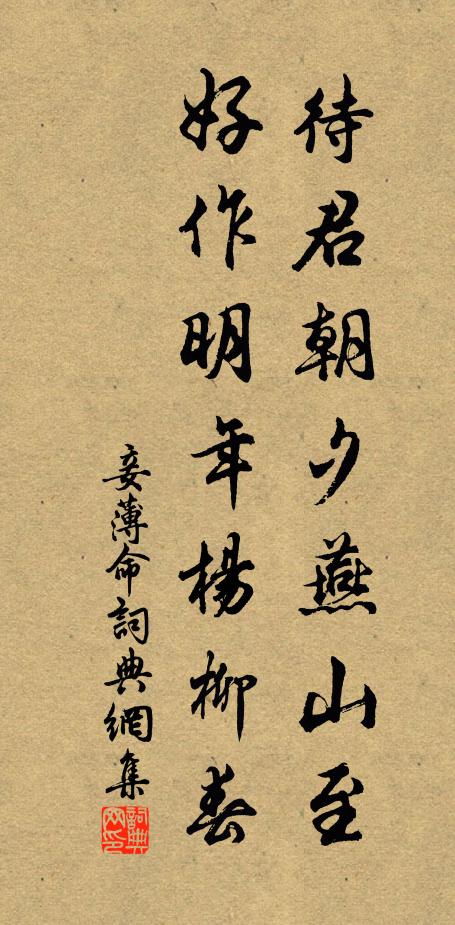 待君朝夕燕山至
好作明年楊柳春
妾薄命詞典網集
詞典網印